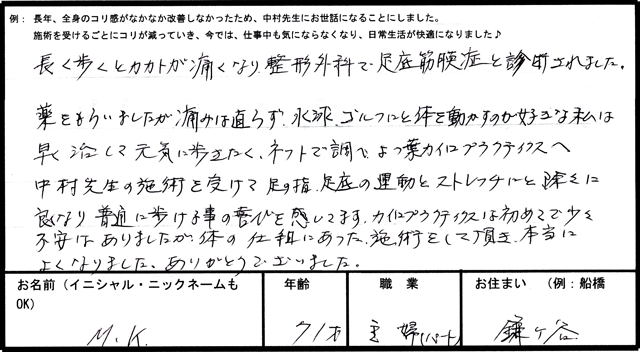 例： 長年、全身のコリ感がなかなか改善しなかったため、中村先生にお世話になることにしました。
施術を受けるごとにコリが減っていき、今では、仕事中も気にならなくなり、日常生活が快適になりました♪
長く歩くとカカトが痛くなり整形外科で足底筋膜症と診断されました。
薬をもらいましたが痛みは直らず、水泳、ゴルフにと体を動かすのが好きな私は
早く治して元気に歩きたく、ネットで調べ、よつ葉カイロプラクティクスへ
中村先生の施術を受けて足の指、足底の運動とストレッチにと除々に
良くなり普通に歩ける事の喜びを感じてます。カイロプラクティクスは初めてで少々
不安はありましたが、体の仕組にあった施術をして頂き、本当に
よくなりました、ありがとうございました。
お名前（イニシャル・ニックネームも 年齢 職 業 お住まい （例：船橋
OK）
M.K. 71才 主婦(パート) 鎌ヶ谷